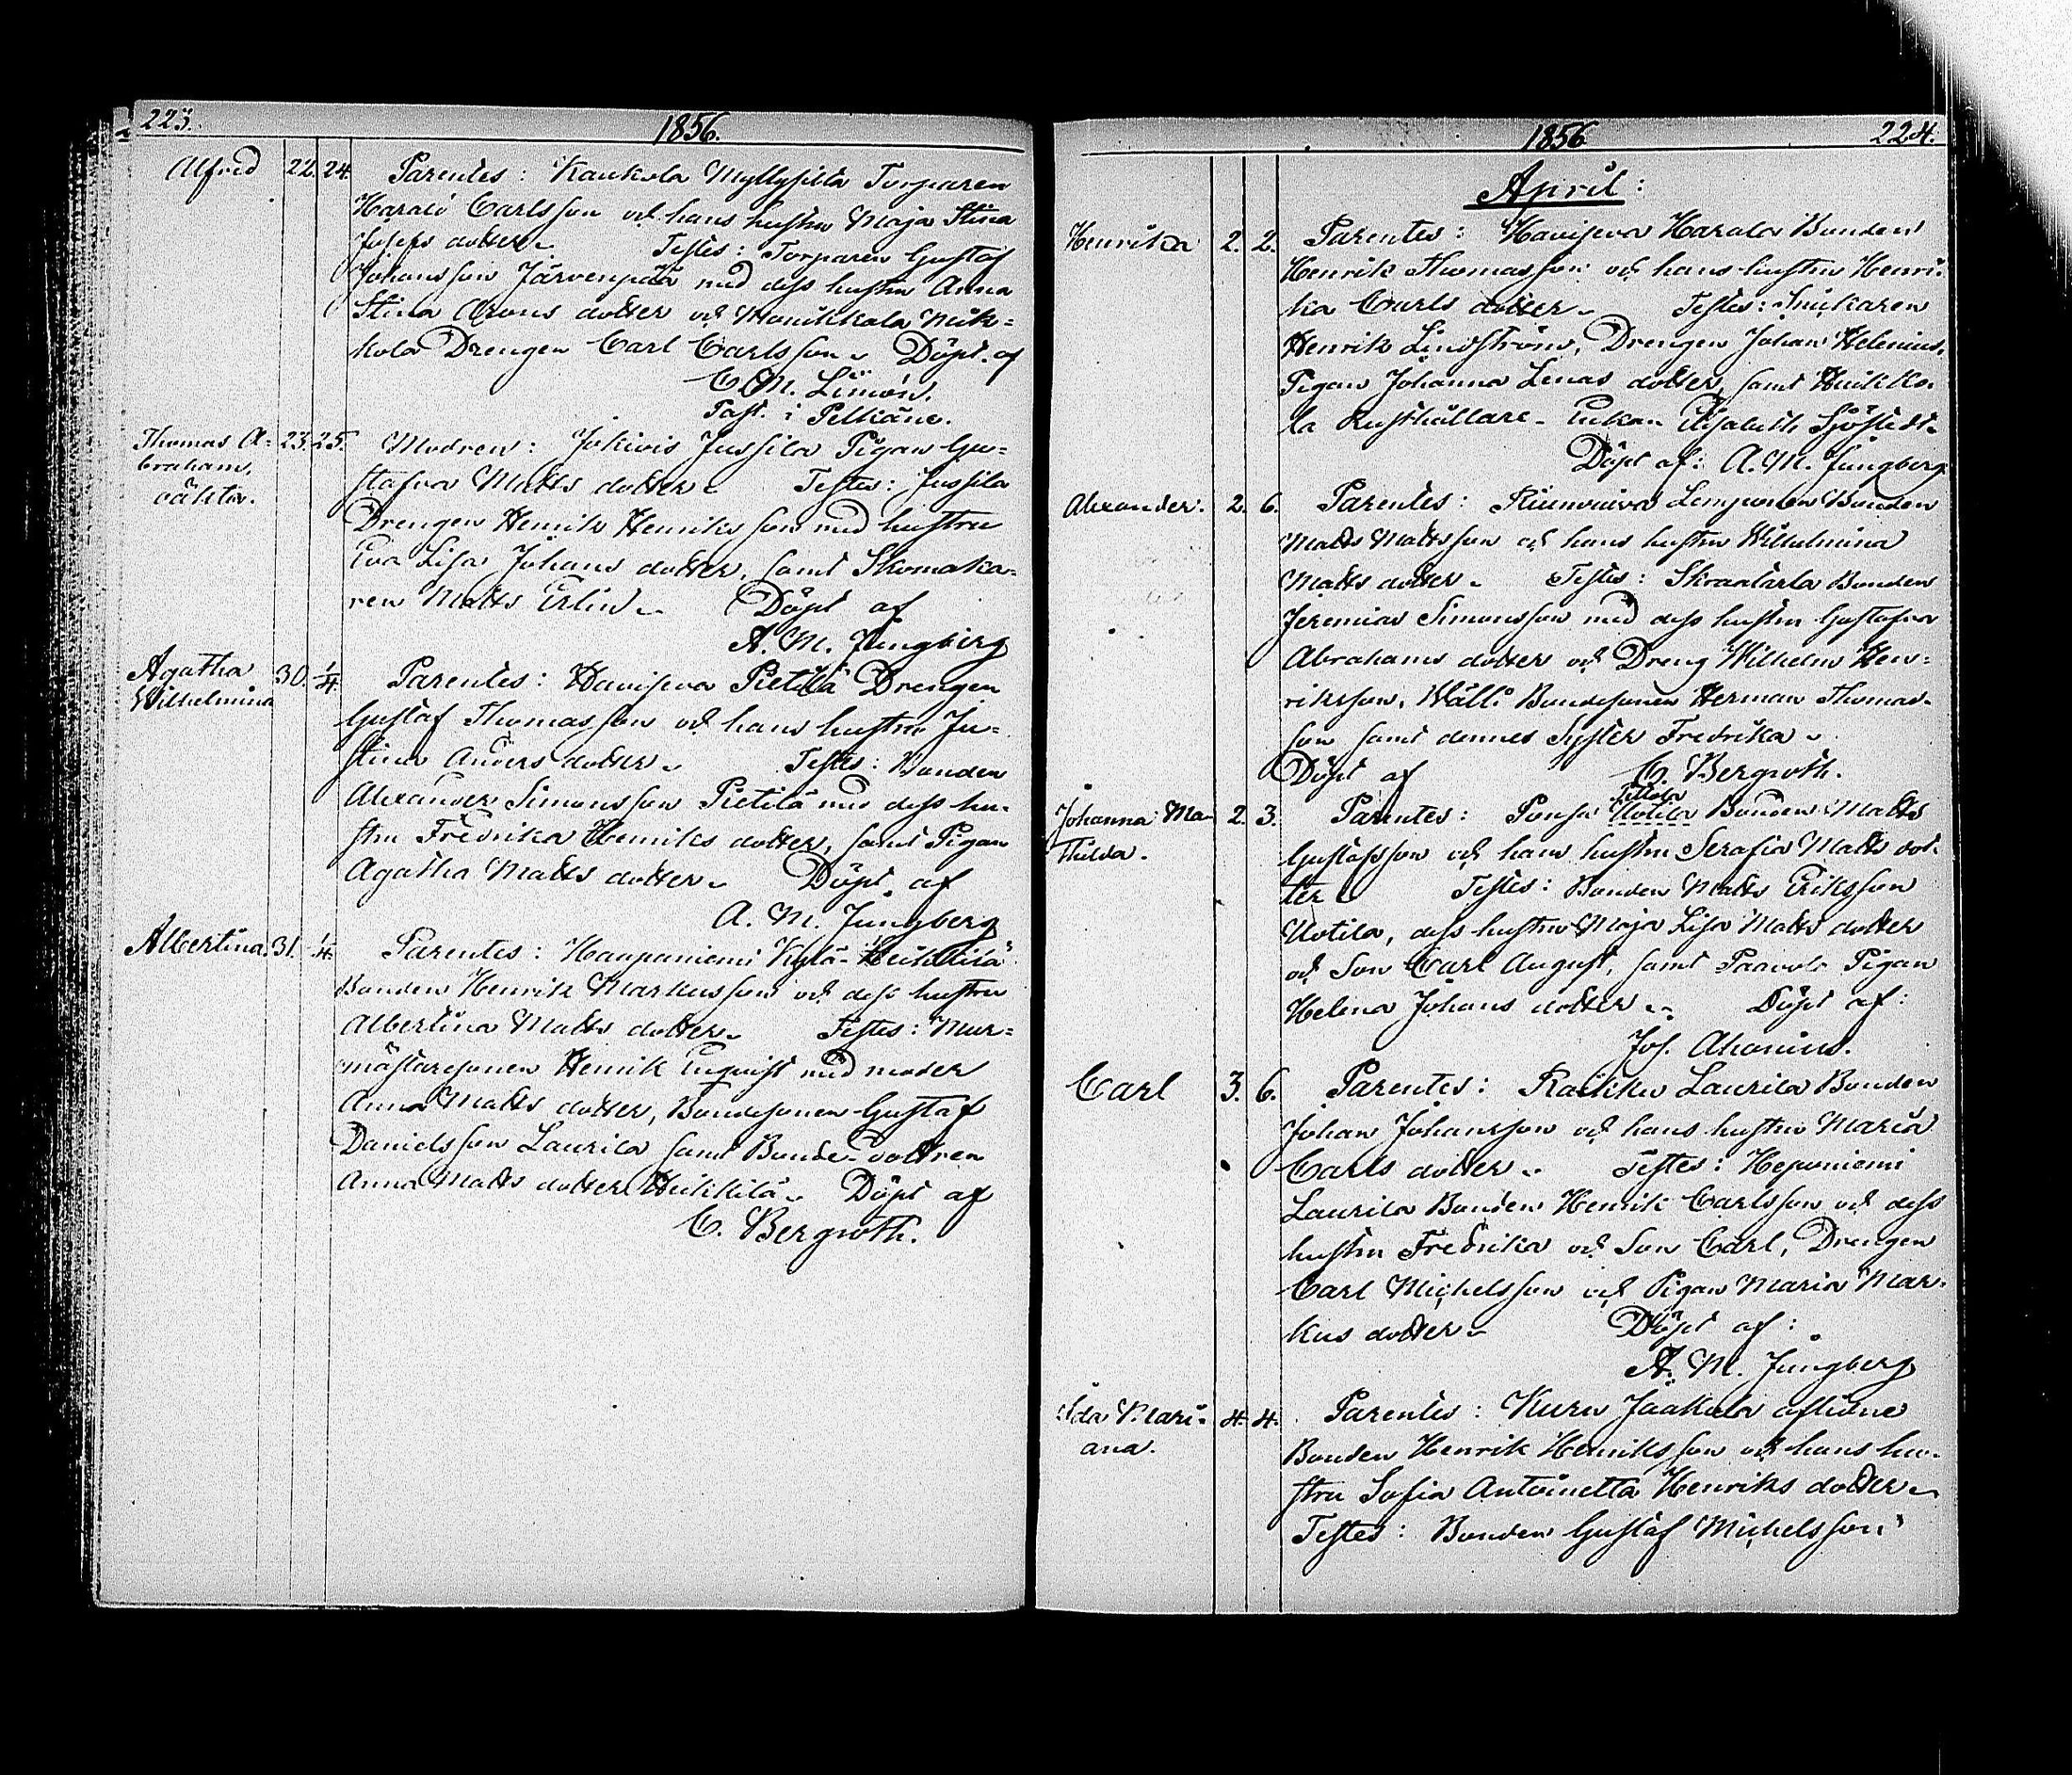 223.
1856.
Alfred 22. 24. Parentes: Kaukola Myllysilta Torparen
Harald Carlsson och hans hustru Maja Stina
Josefs dotter. Testes: Torparen Gustaf
Johansson Järvenpää med dess hustru Anna
Stina Arons dotter och Monikkala Mik=
kola Drengen Carl Carlsson. Döpt af
C. M. Limón.
Past. i Pelkäne.
Thomas A- 23. 25. Modren: Jokivis Jussila Pigan Gu=
braham, stafva Matts dotter. Testes: Jussila
oäkta. Drengen Henrik Henriksson med hustru
Eva Lisa Johans dotter, samt Skomaka=
ren Matts Erlin. Döpt af
A. M. Jungberg
Agatha 30. 1/4. Parentes: Haviseva Pietilä Drengen
Wilhelmina Gustaf Thomasson och hans hustru Ju=
stina Anders dotter. Testes: Bonden
Alexander Simonsson Pietilä med dess hu-
stru Fredrika Henriks dotter, samt Pigan
Agatha Matts dotter. Döpt af
A. M. Jungberg
Albertina. 31. 1/4. Parentes: Haapaniemi Kylä-Heikkilä
Bonden Henrik Markusson och dess hustru
Albertina Matts dotter. Testes: Mur=
mästaresonen Henrik Enqvist med moder
Anna Matts dotter, Bondesonen Gustaf
Danielsson Laurila samt Bonde-dottren
Anna Matts dotter Heikkilä. Döpt af
C. Bergroth.
1856 224.
April:
Henrika 2. 2. Parentes: Haviseva Harala Bonden
Henrik Thomasson och hans hustru Henri-
ka Carls dotter. Testes: Snickaren
Henrik Lindström, Drengen Johan Helenius,
Pigan Johanna Lenas dotter, samt Heikko-
la Rusthållare-Enkan Elisabeth Sjöstedt.
Döpt af: A. M. Jungberg
Alexander. 2. 6. Parentes: Lempoila Bonden
Matts Mattsson och hans hustru Wilhelmina
Matts dotter. Testes: Skraatarla Bonden
Jeremias Simonsson med dess hustru Gustafva
Abrahams dotter och Dreng Wilhelm Hen=
riksson, Wälli Bondesonen Herman Thomas-
son samt dennes Syster Fredrika.
Döpt af C. Bergroth.
Tillola
Johanna Ma- 2. 3. Parentes: Ponsa Uotila Bonden Matts
thilda. Gustafsson och hans hustru Serafia Matts dot-
ter Testes: Bonden Matts Eriksson
Uotila, dess hustru Maja Lisa Matts dotter
och Son Carl August, samt Paavola Pigan
Helena Johans dotter. Döpt af:
Jos. Ahonius.
Carl 3. 6. Parentes: Raikku Laurila Bonden
Johan Johansson och hans hustru Maria
Carls dotter. Testes: Heponiemi
Laurila Bonden Henrik Carlsson och dess
hustru Fredrika och Son Carl, Drengen
Carl Michelsson och Pigan Maria Mar-
kus dotter. Döpt af:
A. M. Jungberg
Ida Mari- 4. 4. Parentes: Kuru Jaakola aflidne
ana. Bonden Henrik Henriksson och hans hu-
stru Sofia Antoinetta Henriks dotter.
Testes: Bonden Gustaf Michelsson